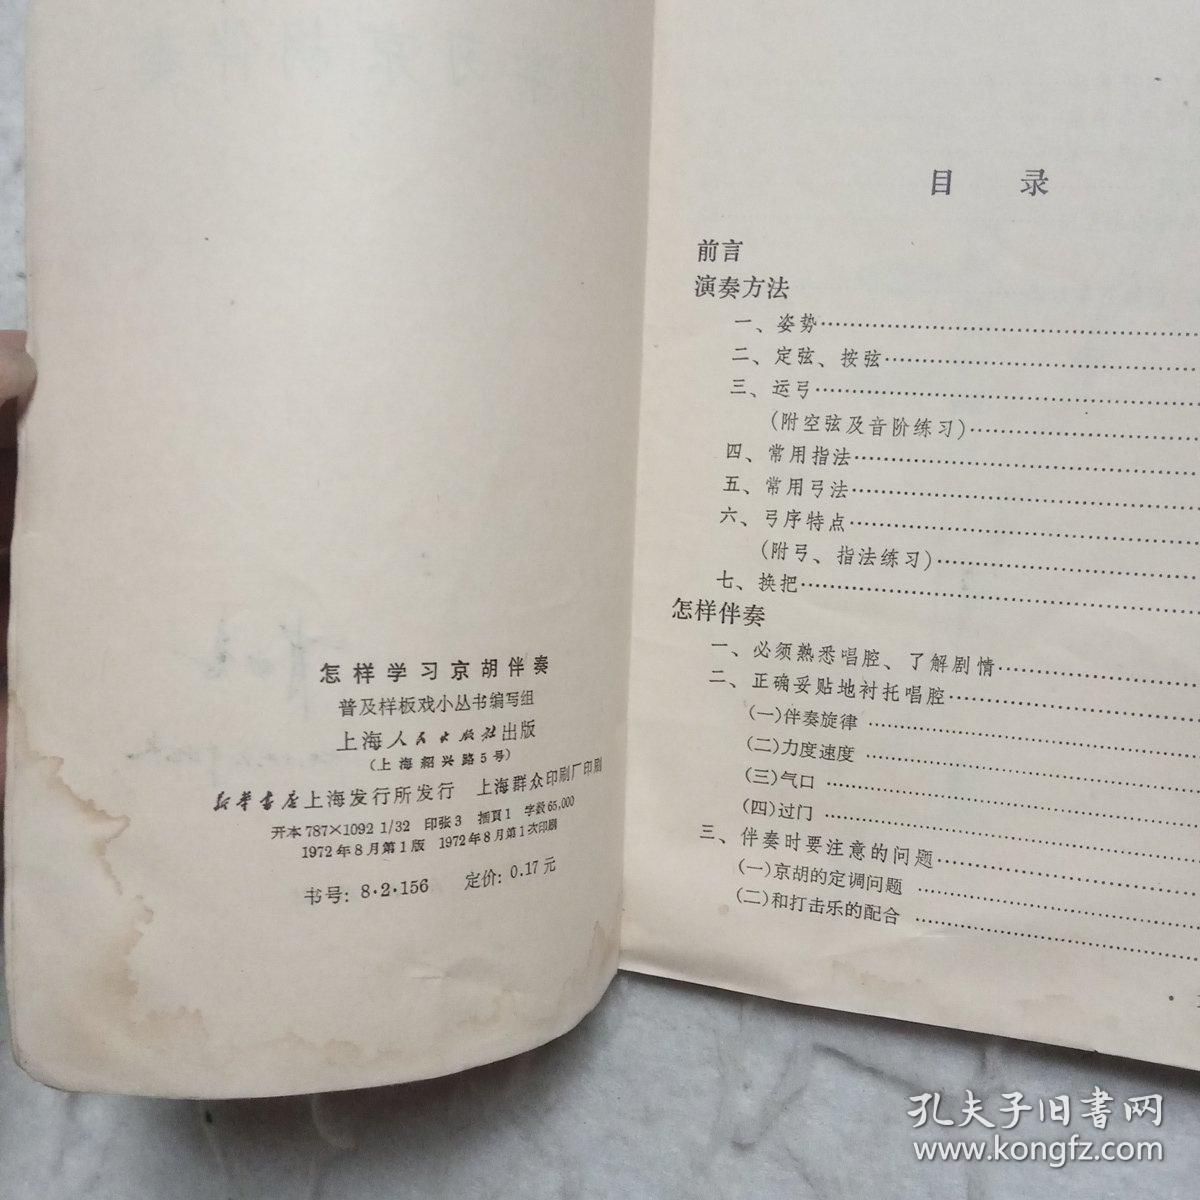 怎样学习京胡伴奏
普及样板戏小丛书编写组
上海人民出版社出版
(上海绍兴路5号)
新华书店上海发行所发行 上海群众印刷厂印刷
开本787×1092 1/32 印张3 插页1 字数65,000
1972年8月第1版 1972年8月第1次印刷
书号: 8·2·156 定价: 0.17元
目 录
前言
演奏方法
一、姿势
二、定弦、按弦
三、运弓
(附空弦及音阶练习)
四、常用指法
五、常用弓法
六、弓序特点
(附弓、指法练习)
七、换把
怎样伴奏
一、必须熟悉唱腔、了解剧情
二、正确妥贴地衬托唱腔
(一)伴奏旋律
(二)力度速度
(三)气口
(四)过门
三、伴奏时要注意的问题
(一)京胡的定调问题
(二)和打击乐的配合
孔夫子旧书网
www.kongfz.com